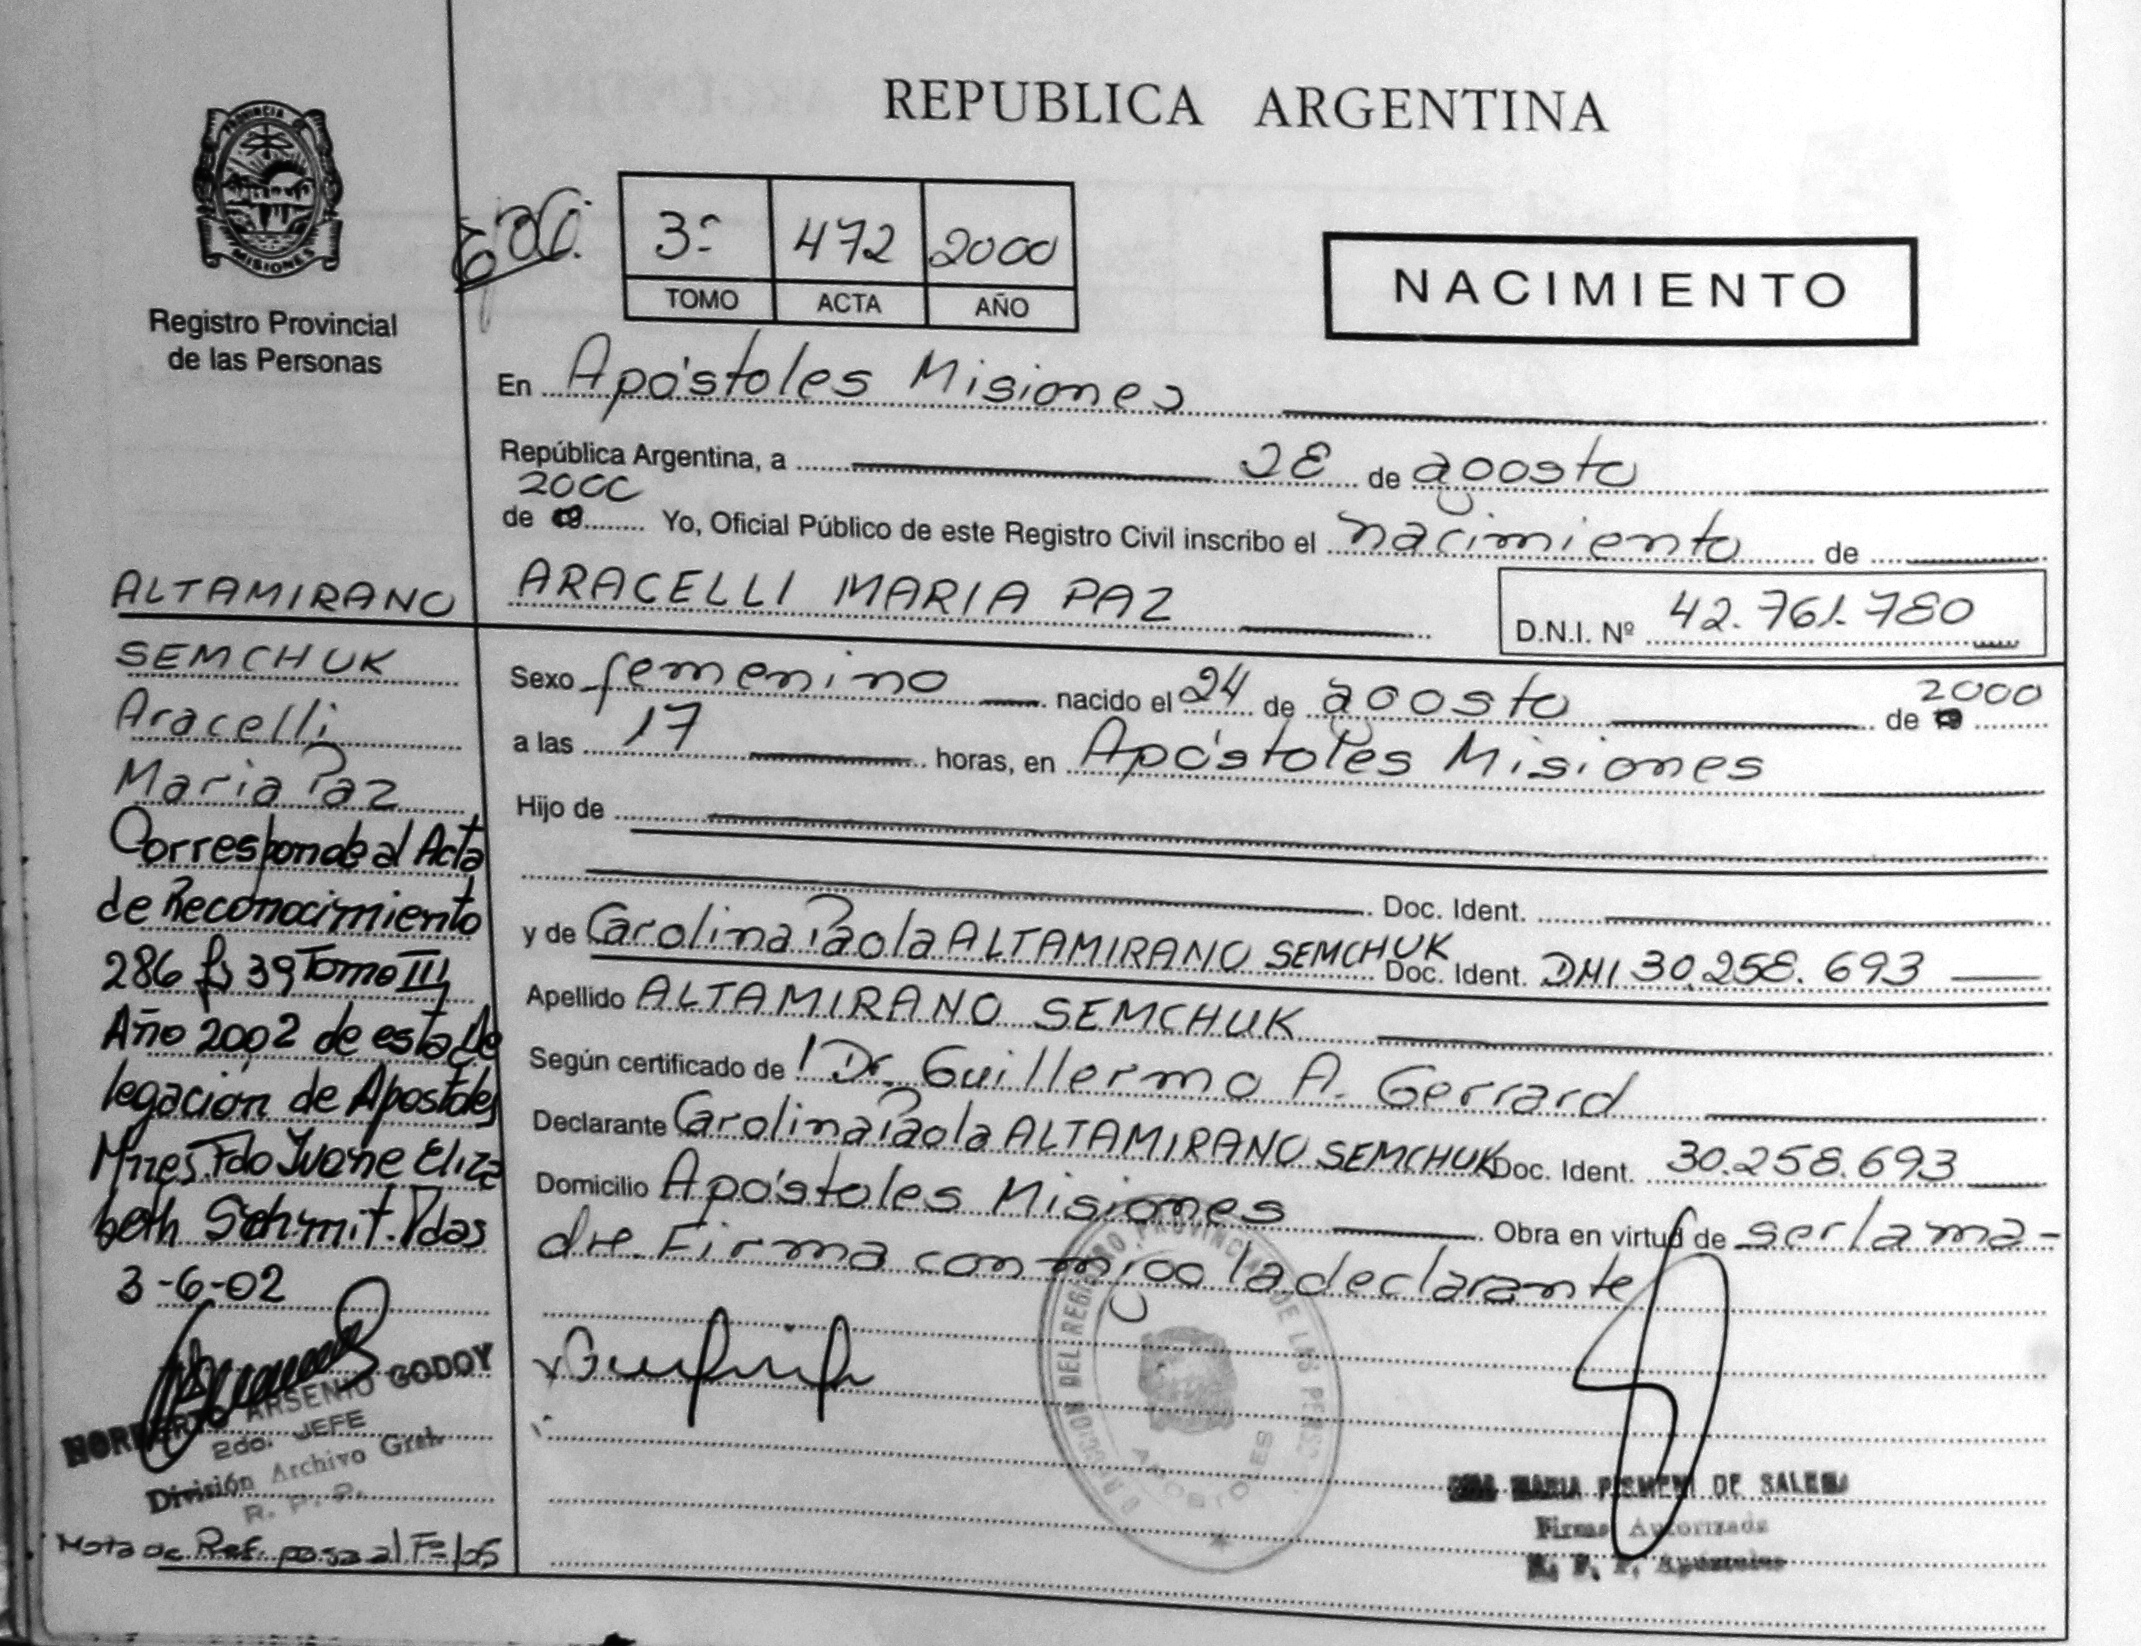 PROVINCIA DE
MISIONES
Registro Provincial
de las Personas
REPUBLICA ARGENTINA
636
3º 472 2000
TOMO ACTA AÑO
NACIMIENTO
En Apóstoles Misiones
República Argentina, a 28 de agosto
2000
de Yo, Oficial Público de este Registro Civil inscribo el nacimiento de
ARACELLI MARIA PAZ D.N.I. Nº 42.761.780
Sexo femenino nacido el 24 de agosto de 2000
a las 17 horas, en Apóstoles Misiones
Hijo de
Doc. Ident.
y de Carolina Paola ALTAMIRANO SEMCHUK Doc. Ident. DNI 30.258.693
Apellido ALTAMIRANO SEMCHUK
Según certificado de l Dr. Guillermo A. Gerrard
Declarante Carolina Paola ALTAMIRANO SEMCHUK Doc. Ident. 30.258.693
Domicilio Apóstoles Misiones Obra en virtud de ser la ma-
dre. Firma conmigo la declarante
ALTAMIRANO
SEMCHUK
Aracelli
Maria Paz
Corresponde al Acta
de Reconocimiento
286 fs 39 Tomo III
Año 2002 de esta De
legación de Apostoles
Mnes. Fdo Ivone Eliza
beth Schmit. Pdas
3-6-02
NORBERTO ARSENIO GODOY
2do. JEFE
División Archivo Gral.
R. P. P.
Nota de Ref. pasa al Fº 105
MARIA DE
Firma Autorizada
R. P. P. Apóstoles